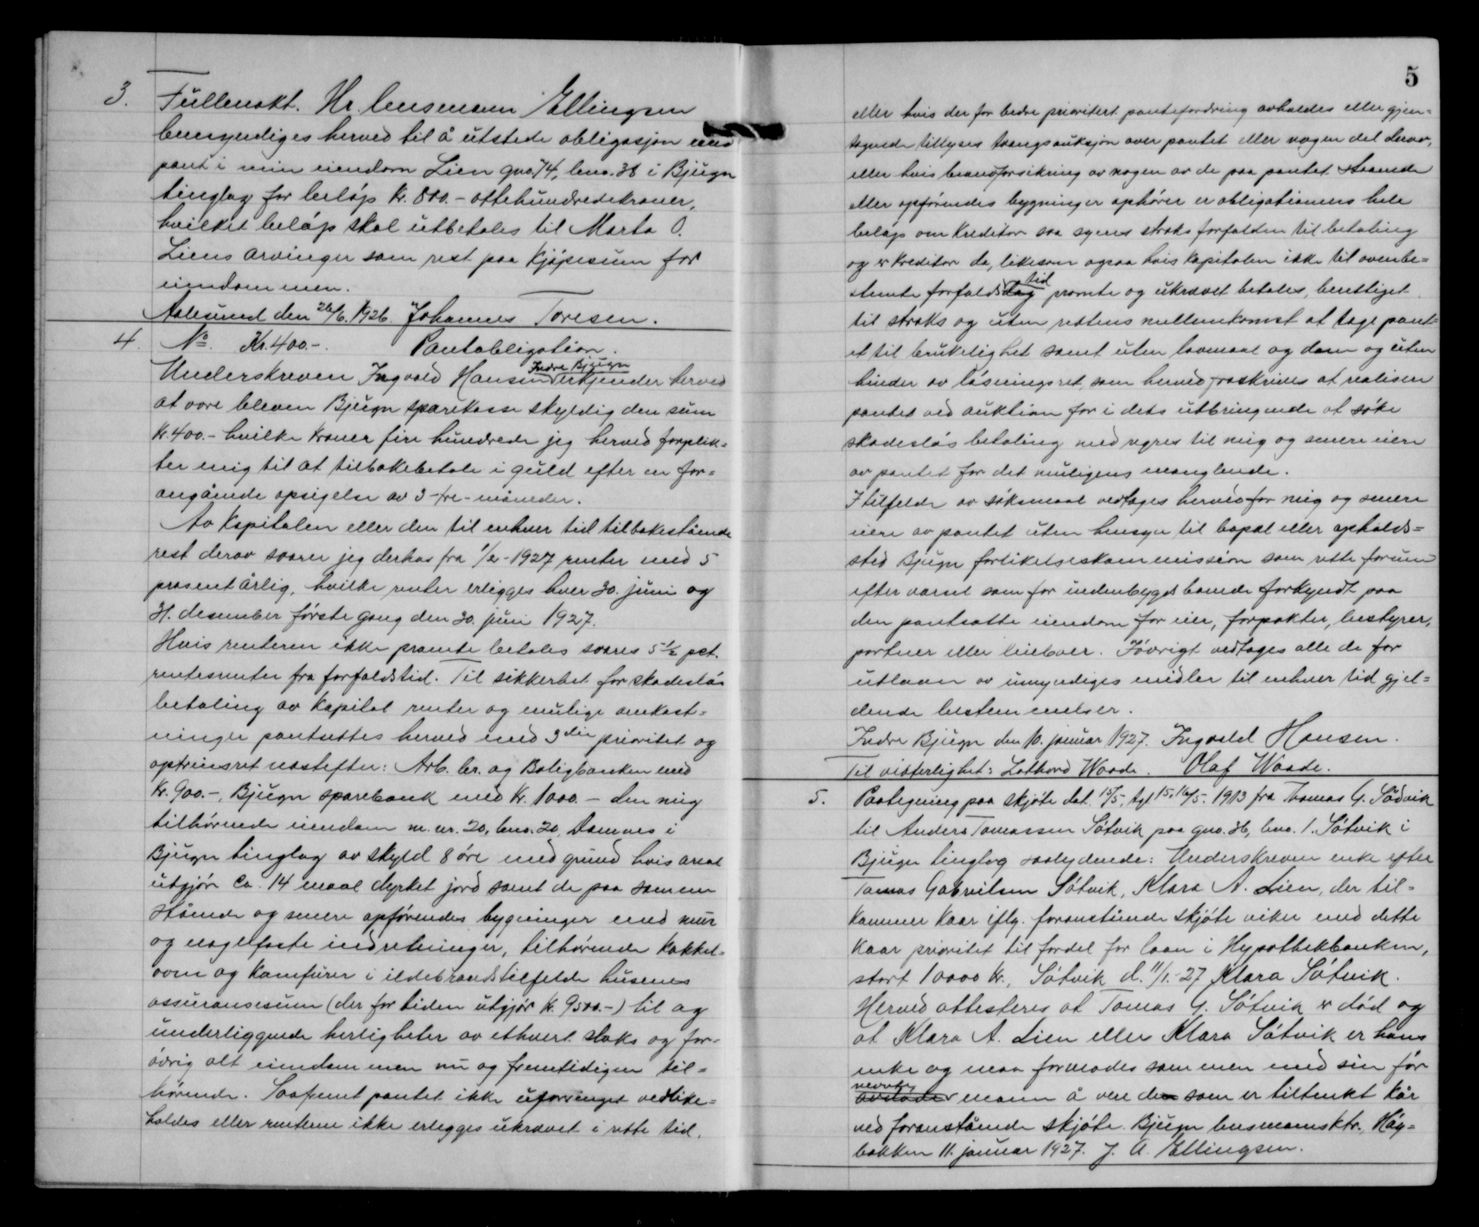 3. Fullmakt. Hr. lensmann Ellingsen
bemyndiges herved til å utstede obligasjon med
pant i min eiendom Lien gno. 74, bno. 38 i Bjugn
tinglag for beløp kr. 800.- ottehundredekroner,
hvilket beløp skal utbetales til Marta O.
Liens arvinger som rest paa kjøpesum for
eiendommen.
Aalesund den 26/6. 1926 Johannes Toresen.
4. No. Kr. 400.-. Pantobligation.
Underskreven Ingvald Hansen Indre Bjugn erkjender herved
at være bleven Bjugn sparekasse skyldig den sum
kr. 400.- hvilke kroner fire hundrede jeg herved forplik-
ter mig til at tilbakebetale i guld efter en for-
angående opsigelse av 3-tre-måneder.
Av kapitalen eller den til enhver tid tilbakestående
rest derav svarer jeg derhos fra 1/2-1927 renter med 5
prosent årlig, hvilke renter erlegges hver 30. juni og
31. desember første gang den 30. juni 1927.
Hvis renterne ikke promte betales svares 5½ pct.
rentesrenter fra forfaldstid. Til sikkerhet for skadesløs
betaling av kapital renter og mulige omkost-
ninger pantsettes herved med 3die prioritet og
optrinsret næstefter: Arb. br. og Boligbanken med
kr. 900.-, Bjugn sparebank med kr. 1000.- den mig
tilhørende eiendom m. nr. 20, bno. 20, Damnes i
Bjugn tinglag av skyld 8 øre med grund hvis areal
utgjør ca. 14 maal dyrket jord samt de paa samme
stående og senere opførendes bygninger med mur
og nagelfaste indretninger, tilhørende kakkel-
ovne og komfurer i ildebrandstilfelde husenes
assuransesum (der for tiden utgjør kr. 9500.-) til og
underliggende herligheter av ethvert slaks og for-
øvrig alt eiendommen nu og fremtidigen til-
hørende. Saafremt pantet ikke uforringet vedlike-
holdes eller renterne ikke erlegges ukrævet i rette tid,
5
eller hvis der for bedre prioritert pantefordring avholdes eller gjen-
tagende tillyses tvangsauksjon over pantet eller nogen del derav,
eller hvis brandforsikring av nogen av de paa pantet staaende
eller opførendes bygninger ophører er obligationens hele
beløp om kreditor saa synes straks forfalden til betaling
og er kreditor da, likesom ogsaa hvis kapitalen ikke til ovenbe-
stemte forfaldsdag tid promte og ukrævet betales, berettiget
til straks og uten rettens mellemkomst at tage pant-
et til brukelighet samt uten lovmaal og dom og uten
hinder av løsningsret, som herved fraskrives at realisere
pantet ved auktion for i dets utbringende at søke
skadesløs betaling med regres til mig og senere eiere
av pantet for det muligens manglende.
I tilfelde av søksmaal vedtages herved for mig og senere
eiere av pantet uten hensyn til bopæl eller opholds-
sted Bjugn forlikelseskommission som rette forum
efter varsel som for indenbygds boende forkyndt paa
den pantsatte eiendom for eier, forpakter, bestyrer,
portner eller leieboer. Iøvrigt vedtages alle de for
utlaan av umyndiges midler til enhver tid gjel-
dende bestemmelser.
Indre Bjugn den 10. januar 1927. Ingvald Hansen.
Til vitterlighet: Lothard Waade. Olaf Waade.
5. Paategning paa skjøte dat. 15/5, tgl. 15. 16/5. 1913 fra Thomas G. Søtvik
til Anders Tomassen Søtvik paa gno. 36, bno. 1. Søtvik i
Bjugn tinglag saalydende: Underskreven enke efter
Tomas Gabrilsen Søtvik, Klara A. Lien, der til-
kommer kaar iflg. foranstående skjøte viker med dette
kaar prioritet til fordel for laan i Hypotekbanken,
stort 10000 kr., Søtvik d. 11/1.-27 Klara Søtvik.
Herved attesteres at Tomas G. Søtvik er død og
at Klara A. Lien eller Klara Søtvik er hans
enke og maa formodes sammen med sin før
nevnte avdøde mann å være den som er tiltenkt kår
ved foranstående skjøte. Bjugn lensmannsktr., Høg-
bakken 11. januar 1927. J. A. Ellingsen.